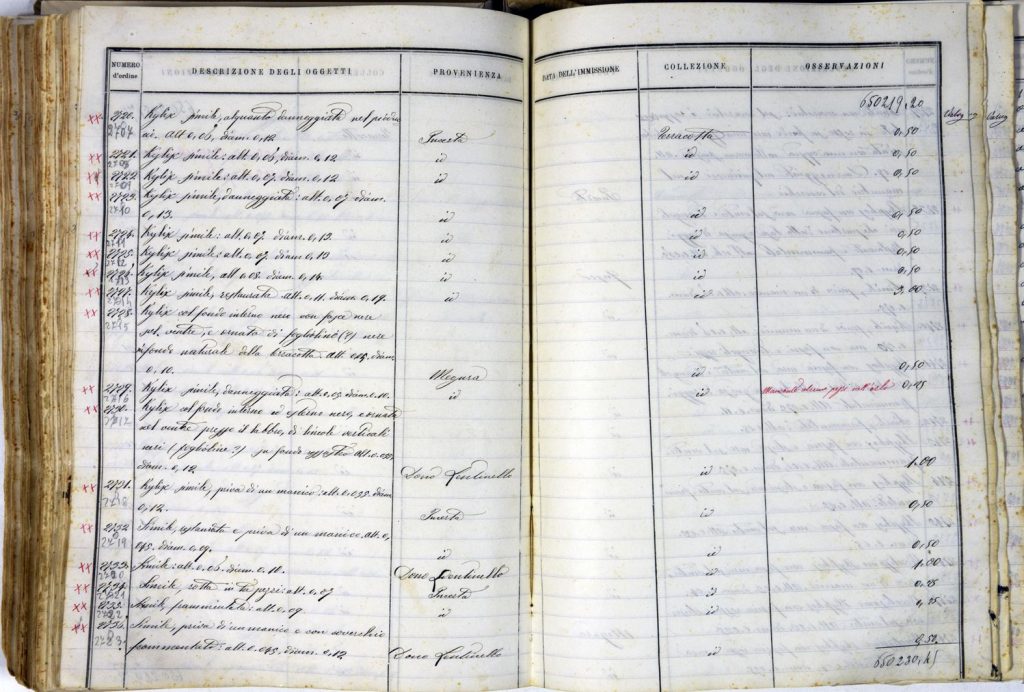 NUMERO d'ordine DESCRIZIONE DEGLI OGGETTI PROVENIENZA DATA DELL'IMMISSIONE COLLEZIONE OSSERVAZIONI
650219,20
2720. Kylix simile, alquanto danneggiata nel piede
2707 alt. 0,05, diam. 0,12 Incerta Terracotta 0,50
2721. Kylix simile: alt. 0,05, diam. 0,12 id id 0,50
2708
2722. Kylix simile: alt. 0,07. diam. 0,12 id id 0,50
2709
2723. Kylix simile, danneggiata: alt. 0,07 diam.
2710 0,13. id id 0,50
2724. Kylix simile: alt. 0,07. diam. 0,13. id id 0,50
2711
2725. Kylix simile: alt. 0,07. diam. 0,13 id id 0,50
2712
2726. Kylix simile, alt. 0,08. diam. 0,14. id id 0,50
2713
2727. Kylix simile, restaurata alt. 0,11. diam. 0,19. id id 3.00
2714
2728. Kylix col fondo interno nero con fasce nere
2715 sul ventre, e ornata di foglioline (?) nere
fondo naturale della terracotta alt. diam.
0,10. Megara id 0,50
2729. Kylix simile, danneggiata: alt. 0,05 diam. 0,10. id id
2716
2730. Kylix col fondo interno ed esterno nero, e ornata
2717 nel ventre presso il labbro, di lineole verticali
neri (foglioline?) su fondo alt. 0,055.
diam. 0,12 Dono id 1.00
2731. Kylix simile, priva di un manico: alt. 0,055. diam.
2718 0,12. Incerta id 0,50
2732 Simile, restaurata e priva di un manico alt. 0,
2719 045. diam. 0,09. id id 0,50
2733. Simile: alt. 0,05. diam. 0,10. Dono id 1.00
2720
2734. Simile, rotta in tre pezzi: alt. 0,07 Incerta id 0,25
2721
2735. Simile, frammentata: alt. 0,09. id id 0,25
2722
2736. Simile, priva di un manico e con
2723. frammentato: alt. 0,045. diam. 0,12 Dono id 0,50
650230,45